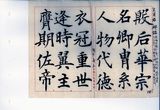 殷后華宗
名卿胄系
人物代德
衣冠重世
逢時翼主
膺期佐帝